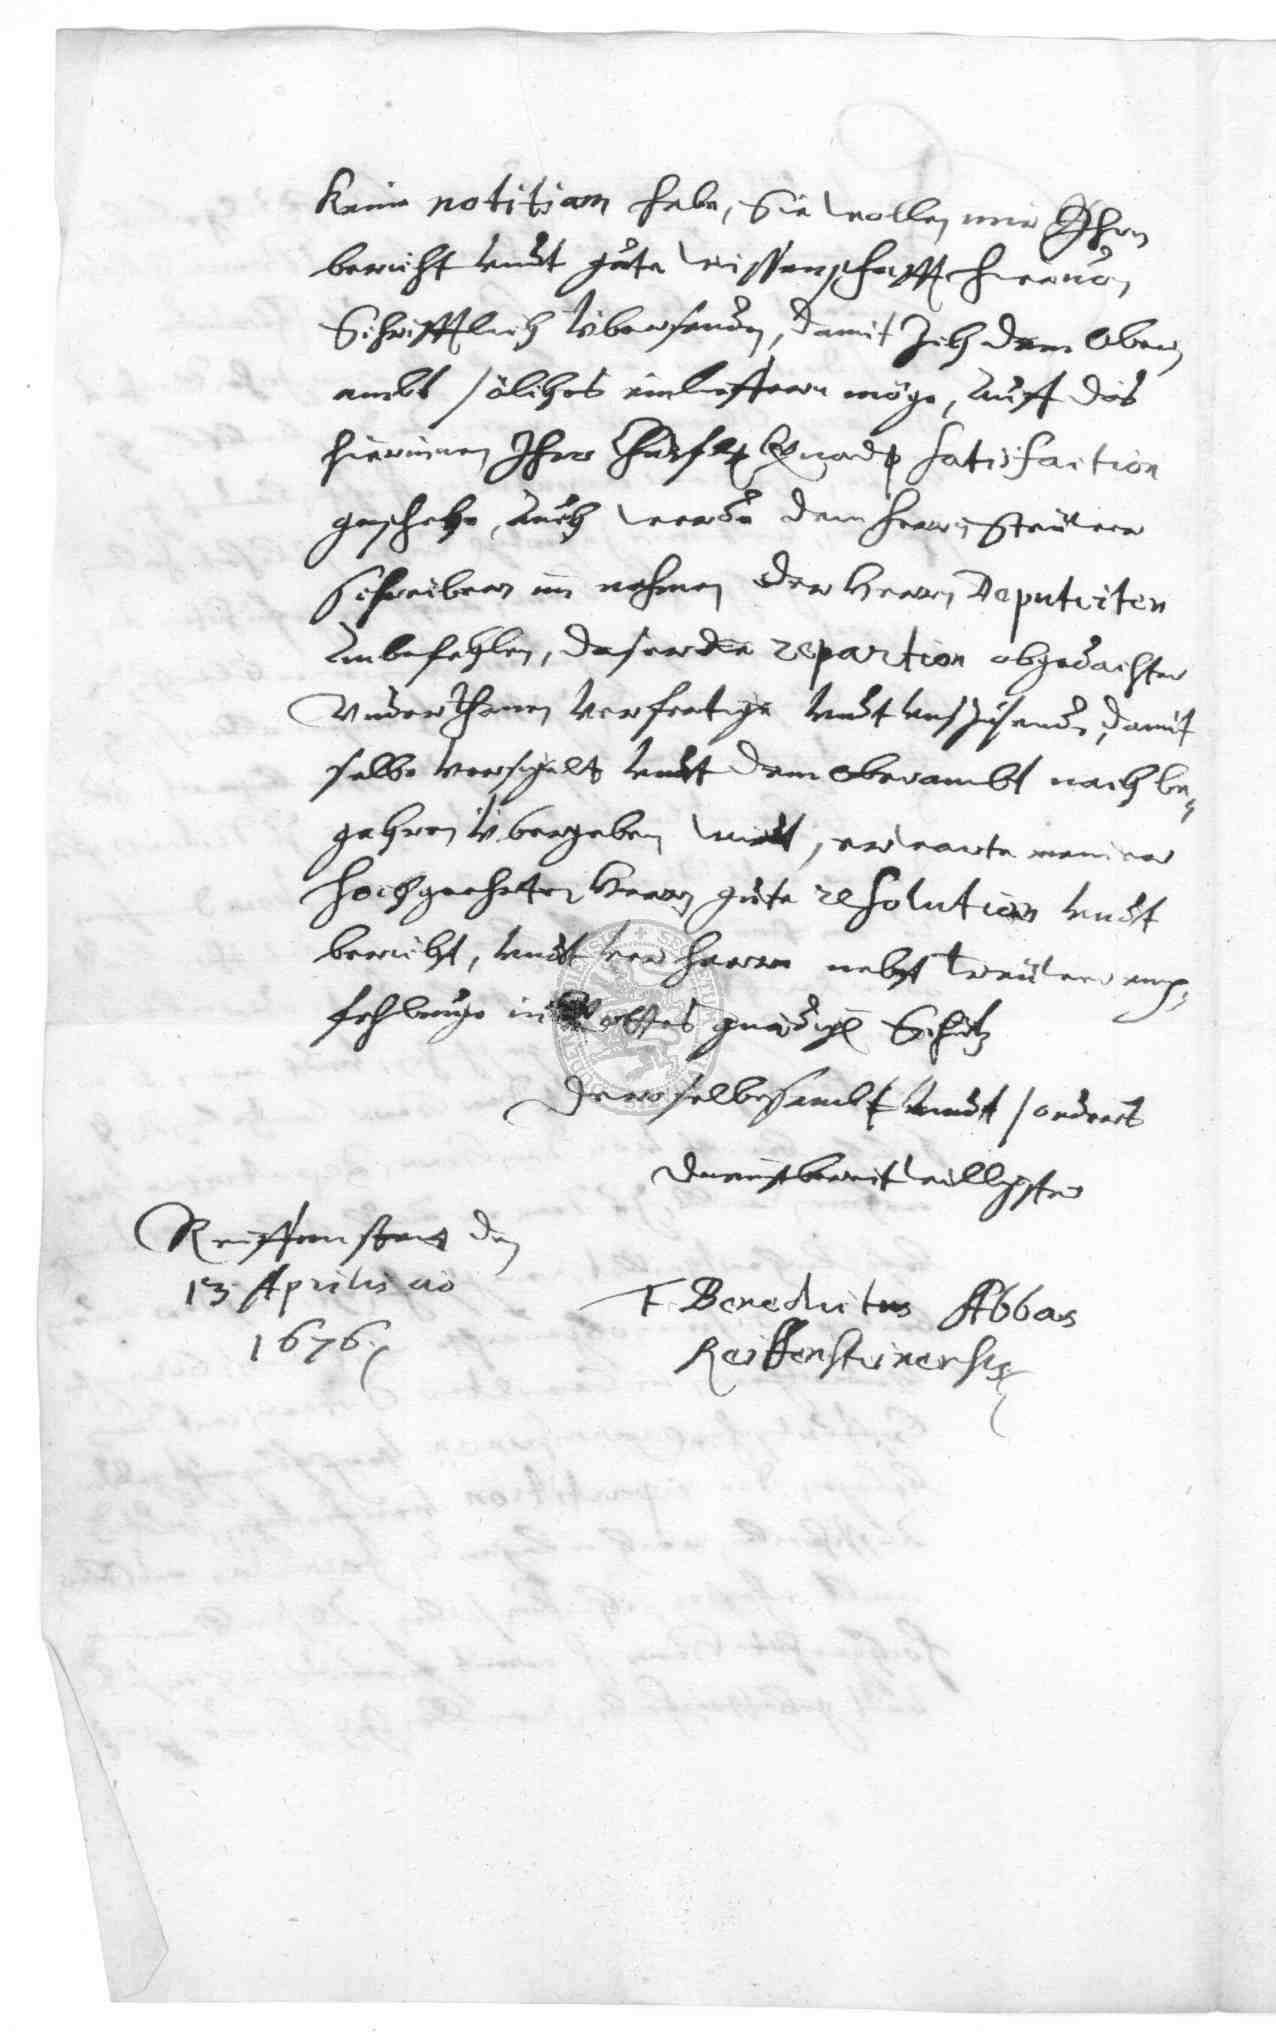 Keine notitiam habe, Sie wollen mir Ihren
bericht undt gute wissenschafft hieruon
Schrifftlich Ubersenden, damit Ich dem Ober
ambt solches einlieffern möge, auff das
hierinnen Ihro Churfl Gnad satisfaction
geschehe, Auch werde dem herrn Steuer
schreiber im nahmen der Herrn Deputirten
Anbefehlen, das er die repartion obgedachter
Under Ihnen verfertige undt uns zusende, damit
selbe versigelt undt dem oberambt nach be,
gehren Ubergeben wirdt, erwarte meiner
hochgeehrten Herrn gute resolution undt
bericht, undt der herrn nebst treuer emp,
fehlunge in Gottes gnädigl Schutz
Deroselbe sambt undt sonders
dienstbereitwilligster
Reiffenstein den
13 Aprilis ao
1676
F. Benedictus Abbas
Reiffensteinensis